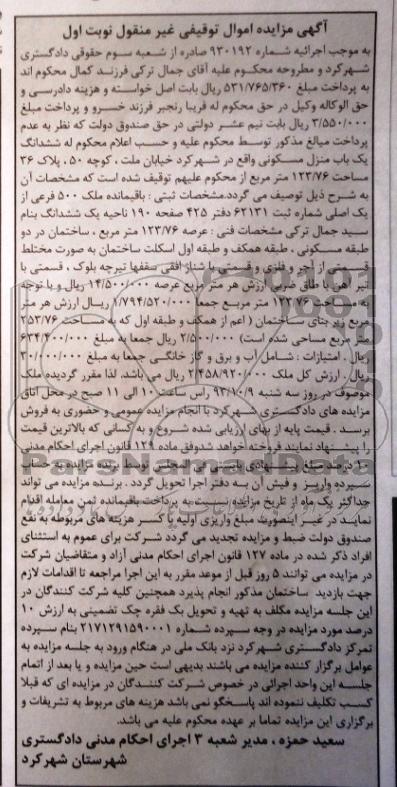 آگهی مزایده اموال توقیفی غیر منقول نوبت اول
به موجب اجرائیه شماره ۹۳۰۱۹۲ صادره از شعبه سوم حقوقی دادگستری
شهرکرد و مطروحه محکوم علیه آقای جمال ترکی فرزند کمال محکوم اند
به پرداخت مبلغ ۵۳۱/۷۶۵/۳۶۰ ریال بابت اصل خواسته و هزینه دادرسی و
حق الوکاله وکیل در حق محکوم له فریبا رنجبر فرزند خسرو و پرداخت مبلغ
۳/۵۵۰/۰۰۰ ریال بابت نیم عشر دولتی در حق صندوق دولت که نظر به عدم
پرداخت مبالغ مذکور توسط محکوم علیه و حسب اعلام محکوم له ششدانگ
یک باب منزل مسکونی واقع در شهرکرد خیابان ملت ، کوچه ۵۰ ، پلاک ۳۶
مساحت ۱۲۳/۷۶ متر مربع از محکوم علیهم توقیف شده است که مشخصات آن
به شرح ذیل توصیف می گردد.مشخصات ثبتی : باقیمانده ملک ۵۰۰ فرعی از
یک اصلی شماره ثبت ۶۲۱۳۱ دفتر ۴۲۵ صفحه ۱۹۰ ناحیه یک ششدانگ بنام
سید جمال ترکی مشخصات فنی : عرصه ۱۲۳/۷۶ متر مربع ، ساختمان در دو
طبقه مسکونی ، طبقه همکف و طبقه اول اسکلت ساختمان به صورت مختلط
قسمتی از آجر و فلزی و قسمتی با شناژ افقی سقفها تیرچه بلوک ، قسمتی با
تیر آهن با طاق ضربی ارزش هر متر مربع عرصه ۱۴/۵۰۰/۰۰۰ ریال و با توجه
به مساحت ۱۲۳/۷۶ متر مربع جمعا ۱/۷۹۴/۵۲۰/۰۰۰ ریال ارزش هر متر
مربع زیر بنای ساختمان ( اعم از همکف و طبقه اول که به مساحت ۲۵۳/۷۶
متر مربع مساحی شده است) ۲/۵۰۰/۰۰۰ ریال جمعا به مبلغ ۶۳۴/۴۰۰/۰۰۰
ریال . امتیازات : شامل آب و برق و گاز خانگی جمعا به مبلغ ۳۰/۰۰۰/۰۰۰
ریال . ارزش کل ملک ۲/۴۵۸/۹۲۰/۰۰۰ ریال می باشد. لذا مقرر گردیده ملک
موصوف در روز سه شنبه ۹۳/۱۰/۹ راس ساعت ۱۰ الی ۱۱ صبح در محل اتاق
مزایده های دادگستری شهرکرد با انجام مزایده عمومی و حضوری به فروش
برسد . قیمت پایه از بهای ارزیابی شده شروع و به کسانی که بالاترین قیمت
را پیشنهاد نمایند فروخته خواهد شدوفق ماده ۱۲۹ قانون اجرای احکام مدنی
۱۰ درصد مبلغ پیشنهادی بایستی فی المجلس توسط برنده مزایده به حساب
سپرده واریز و فیش آن به دفتر اجرا تحویل گردد . برنده مزایده می تواند
حداکثر یک ماه از تاریخ مزایده نسبت به پرداخت باقیمانده ثمن معامله اقدام
نماید در غیر اینصورت مبلغ واریزی اولیه با کسر هزینه های مربوطه به نفع
صندوق دولت ضبط و مزایده تجدید می گردد شرکت برای عموم به استثنای
افراد ذکر شده در ماده ۱۲۷ قانون اجرای احکام مدنی آزاد و متقاضیان شرکت
در مزایده می توانند ۵ روز قبل از موعد مقرر به این اجرا مراجعه تا اقدامات لازم
جهت بازدید ساختمان مذکور انجام پذیرد همچنین کلیه شرکت کنندگان در
این جلسه مزایده مکلف به تهیه و تحویل یک فقره چک تضمینی به ارزش ۱۰
درصد مورد مزایده در وجه سپرده شماره ۲۱۷۱۲۹۱۵۹۰۰۰۱ بنام سپرده
تمرکز دادگستری شهرکرد نزد بانک ملی در هنگام ورود به جلسه مزایده به
عوامل برگزار کننده مزایده می باشند بدیهی است حین مزایده و یا بعد از اتمام
جلسه این واحد اجرائی در خصوص شرکت کنندگان در مزایده ای که قبلا
کسب تکلیف ننموده اند پاسخگو نمی باشد هزینه های مربوط به تشریفات و
برگزاری این مزایده تماما بر عهده محکوم علیه می باشد.
سعید حمزه ، مدیر شعبه ۳ اجرای احکام مدنی دادگستری
شهرستان شهرکرد
ParsNamadData